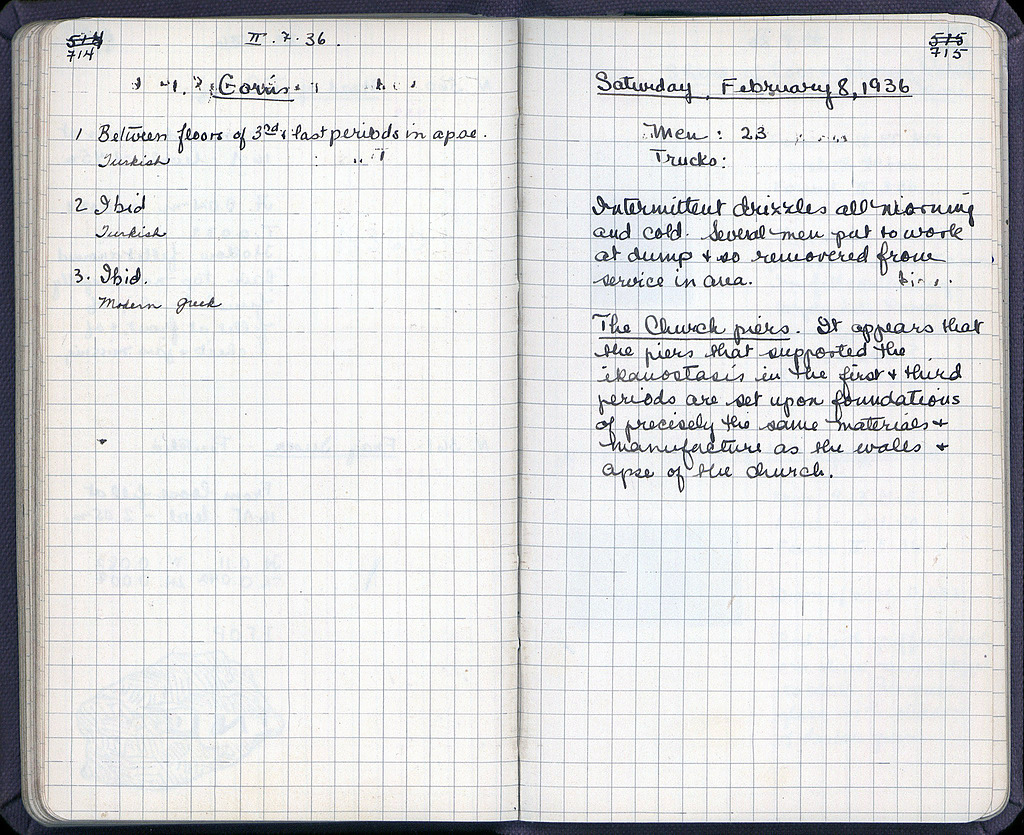 514
714
II. 7. 36.
Coins
1 Between floors of 3rd & last periods in apse.
Turkish
2 Ibid
Turkish
3. Ibid.
Modern greek
515
715
Saturday, February 8, 1936
Men: 23
Trucks:
Intermittent drizzles all morning
and cold. Several men put to work
at dump & so removed from
service in area.
The Church piers. It appears that
the piers that supported the
ikanostasis in the first & third
periods are set upon foundations
of precisely the same materials &
manufacture as the walls &
apse of the church.